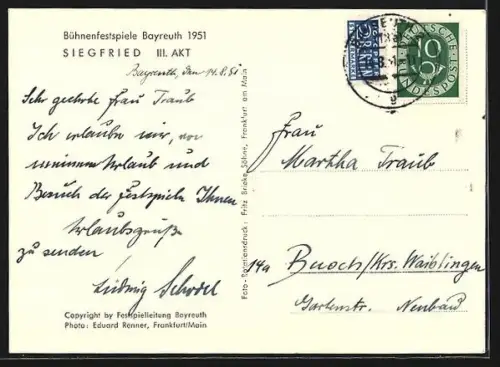 Bühnenfestspiele Bayreuth 1951
SIEGFRIED III. AKT
Bayreuth, den 14.8.51
Sehr geehrte Frau Traub
Ich erlaube mir, von
meinem Urlaub und
Besuch der Festspiele Ihnen
Urlaubsgrüße
zu senden
Ludwig
Copyright by Festspielleitung Bayreuth
Photo: Eduard Renner, Frankfurt/Main
Foto-Rotationsdruck: Fritz Brieke Söhne, Frankfurt am Main
DEUTSCHE
BUNDESPOST
10
Frau
Martha Traub
14a Buoch/Krs. Waiblingen
Gartenstr. Neubau